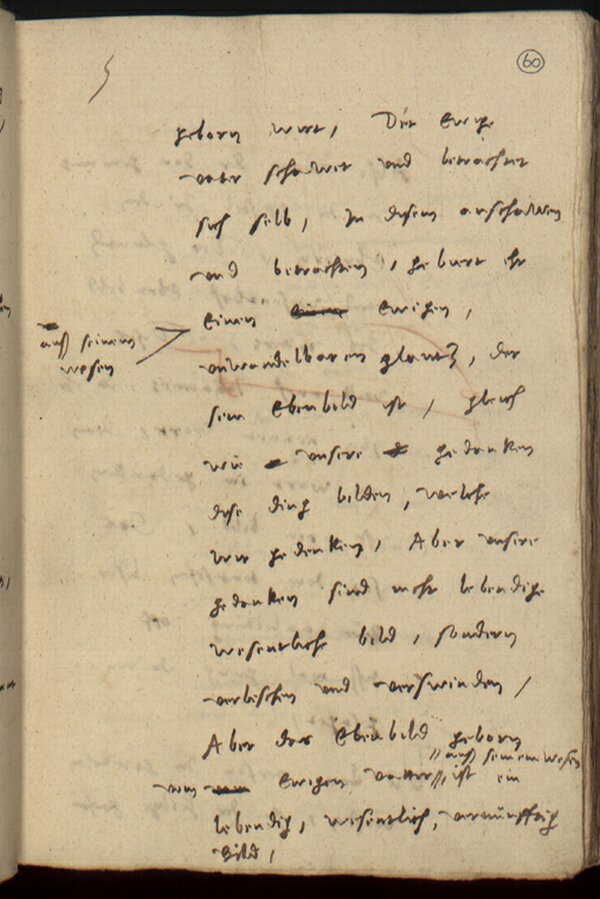 60
geborn wirt, Der Ewige
vater schawet und betrachtet
sich selb, In disem anschawen
und betrachten, gebiert ehr
einen Ewigen,
auß seinem
wesen
unwandelbaren glantz, der
sein Ebenbild ist, gleich
wie unsere gedanken
dise ding bilden, welche
wir gedenken, Aber unsere
gedanken sind nicht lebendige
wesentliche bild, sondern
verleschen und verswinden,
Aber das Ebenbild geborn
auß seinem wesen
vom Ewigen vatter, ist ein
lebendig, wesentlich, vernunfftig
Bild,